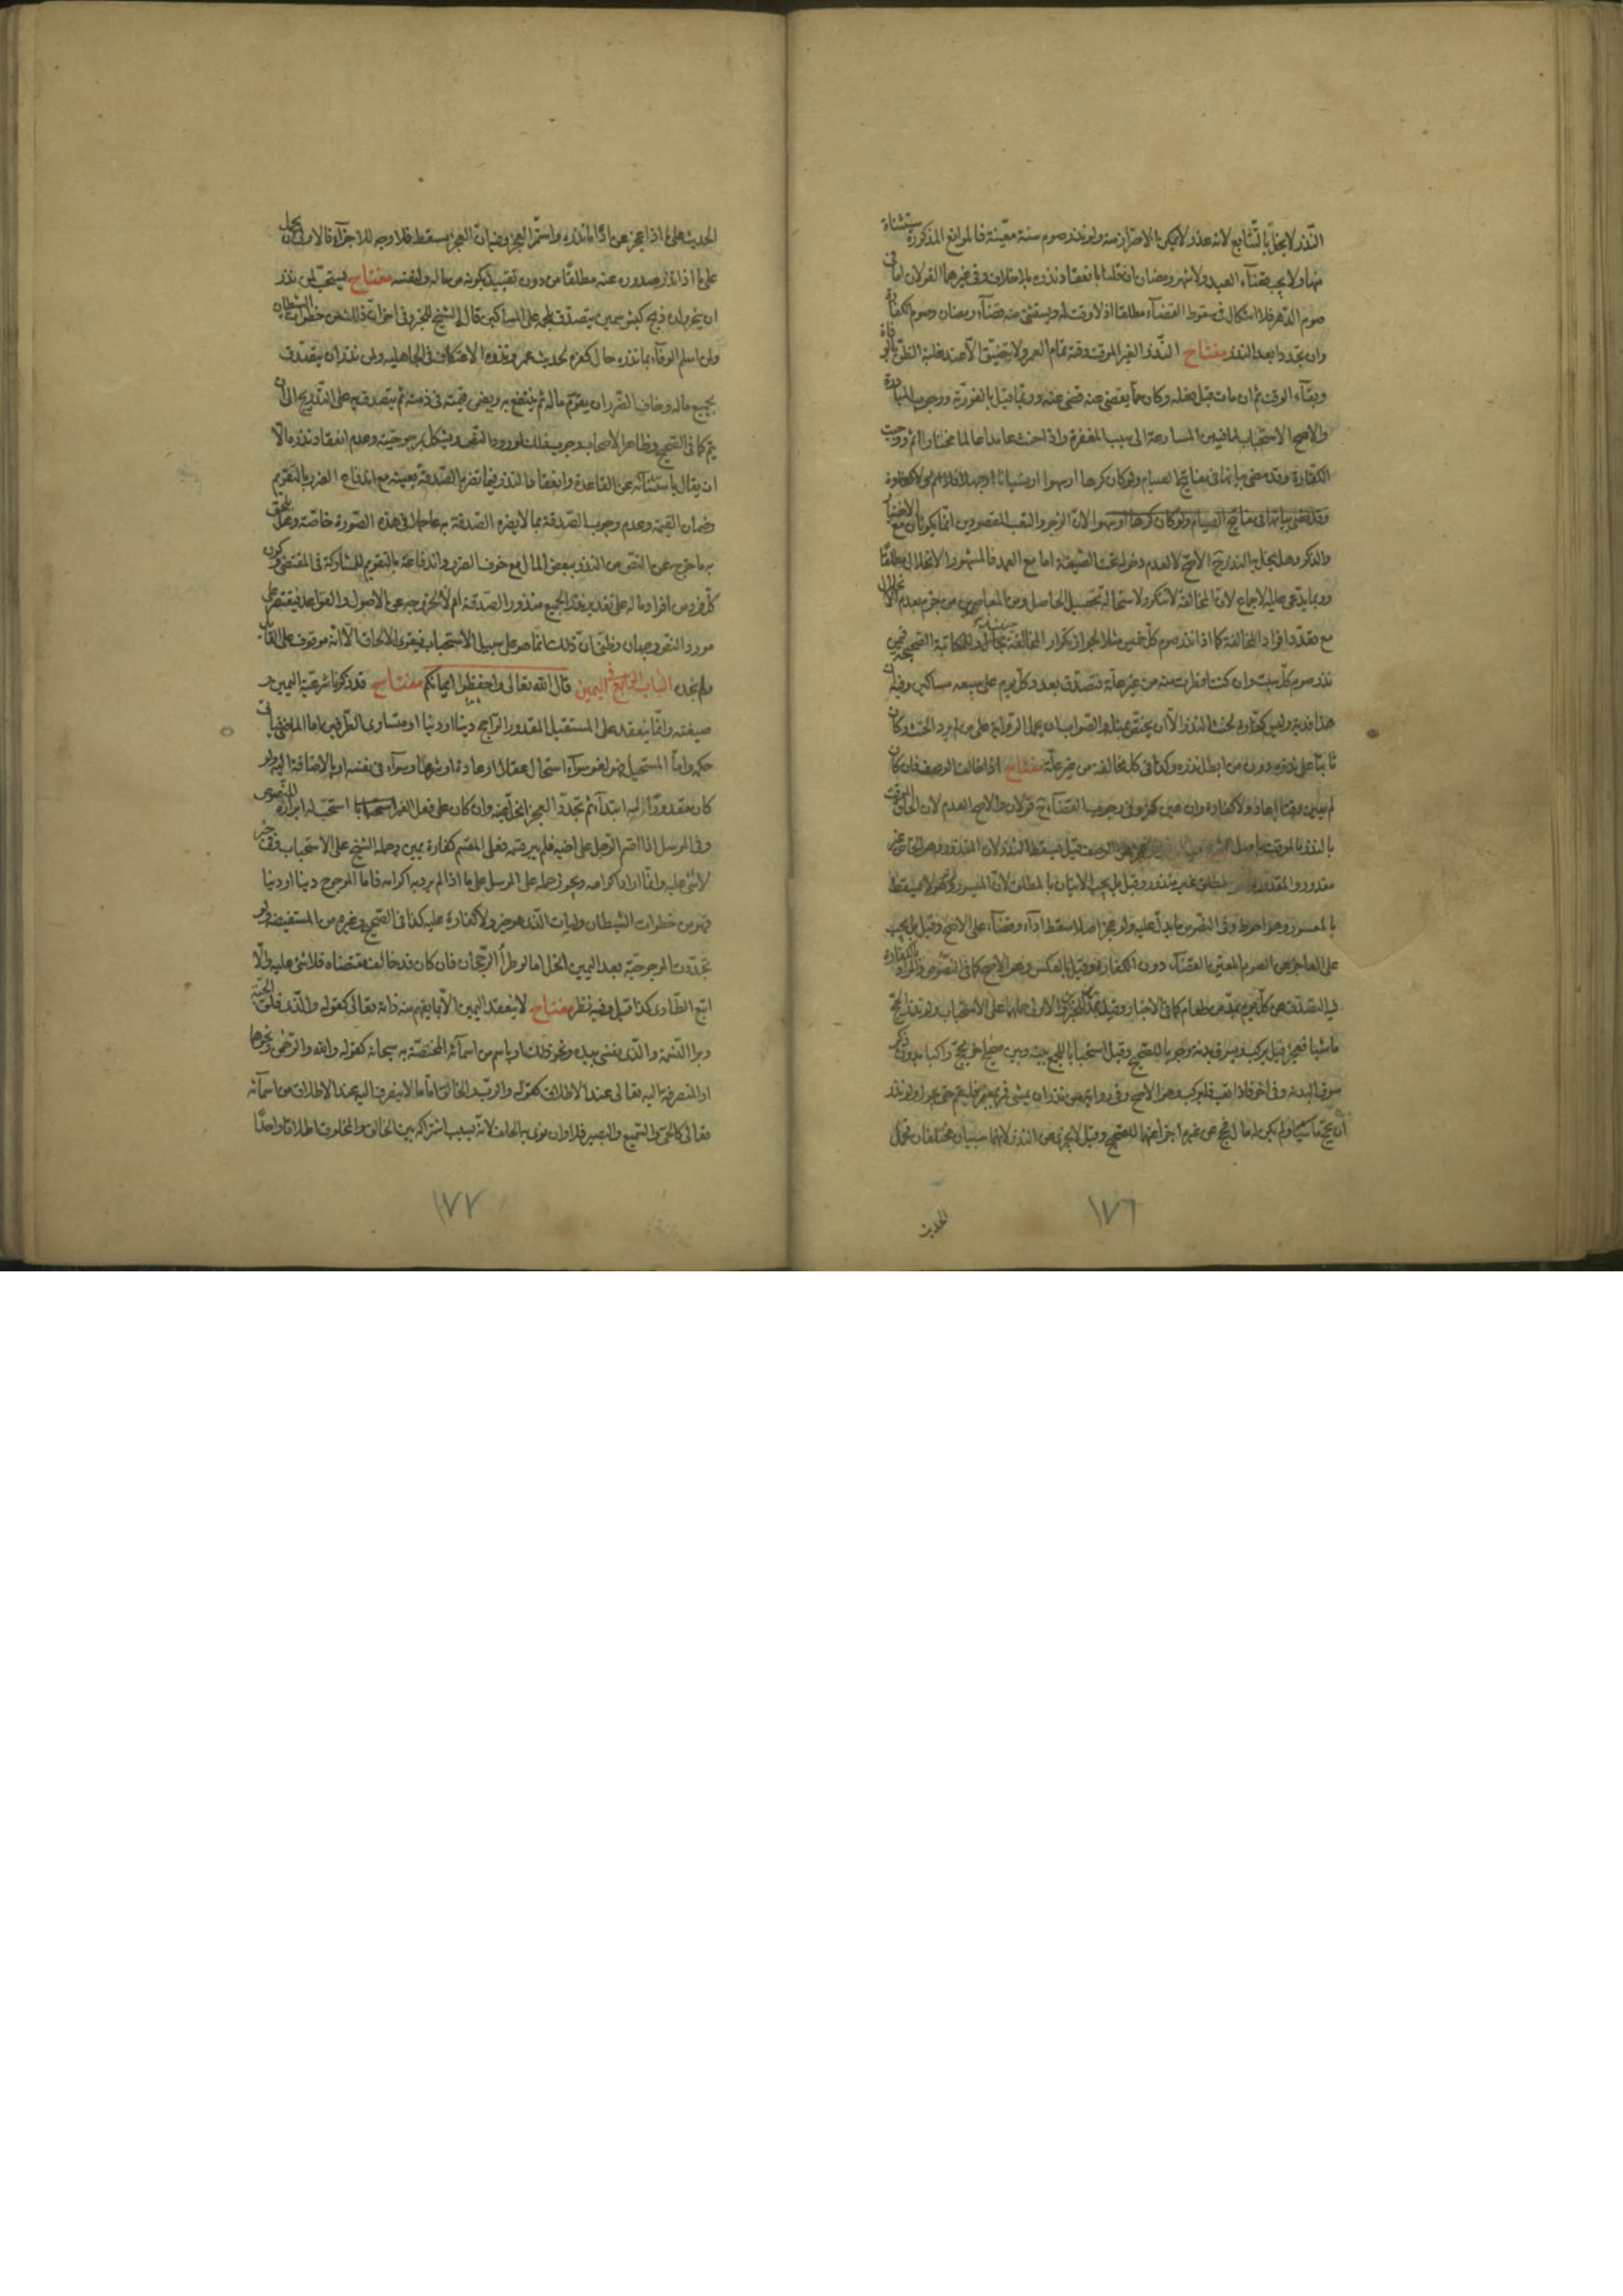 النّذر لا يخلّ بالتّتابع لانه عذر لا يمكن الاحتراز منه ولو نذر صوم سنة معيّنة فالموانع المذكورة مستثناة
منها ولا يجب قضاء العيد ولا شهر رمضان ان قلنا بانعقاد نذره بلا خلاف وفي غيرهما القولان اما في
صوم الدّهر فلا اشكال في سقوط القضاء مطلقا اذ لا وقت له ويستثنى منه قضاء رمضان وصوم الكفارة
وان تجدّدا بعد النذر مفتاح النّذر الغير الموقت وقته تمام العمر ولا يتضيّق الا عند غلبة الظنّ بالوفاة
وبقاء الوقت ثم ان مات قبل فعله وكان مما يقضى عنه قضي عنه وربّما قيل بالفوريّة ووجوب المبادرة
والاصح الاستحباب لما فيه من المسارعة الى سبب المغفرة واذا حنث عامدا عالما مختارا اثم ووجبت
الكفارة وقد مضى بيانها في مفاتيح الصيام ولو كان كرها او سهوا
وقد مضى بيانها في مفاتيح الصيام ولو كان كرها او سهوا لانّ الزجر والتعب المقصودين انّما يكونان مع الاختيار
والذكر وهل ينحل النذر ح الاصح لا لعدم دخوله تحت الصّيغة اما مع العمد فالمشهور الانحلال مطلقا
وربما يدّعى عليه الاجماع لانّ المخالفة لا تتكرر ولاستحالة تحصيل الحاصل ومن المعاصرين من جزم بعدم الانحلال
مع تعدّد افراد المخالفة كما اذا نذر صوم كلّ خميس مثلا لجواز تكرار المخالفة للمكاتبة الصّحيحة فيمن
نذر صوم كلّ سبت وان كنت افطرت منه من غير علّة فتصدّق بعدد كلّ يوم على سبعة مساكين وفيه ان
هذا فدية وليس كفّارة لحنث النذر الا ان يختصّ والصّواب ان يحمل الرواية على من لم يرد الحنث وكان
ثابتا على نذره دون من ابطل نذره وكذا في كل مخالفة من غير علّة مفتاح اذا خالف الوصف فان كان
لم يعين وقتا اعاد ولا كفارة وان عين كفر وفي وجوب القضاء ح قولان والاصح العدم لان الحاق الموقت
بالنذر بالموقت باصل الوصف قيل يسقط النذر لان المنذور وهو الخاص غير
مقدور والمقدور وهو المطلق غير منذور وقيل بل يجب الاتيان بالمطلق لانّ الميسور لا يسقط
بالمعسور وهو احوط وفي النّصوص ما يدلّ عليه ولو عجز اصلا سقط اداء وقضاء على الاصح وقيل بل يجب
على العاجز عن الصوم المعيّن القضاء دون الكفارة وقيل بالعكس وهو الاصح كما في النّصوص والمراد بالكفارة
فيه التصدّق عن كلّ يوم بمدّ من طعام كما في الاخبار وقيل بمدّين والاولى حملها على الاستحباب ولو نذر الحج
ماشيا فعجز قيل يركب ويسوق بدنة وجوبا للصّحيح وقيل استحبابا للجمع بينه وبين صحيح اخر يحج راكبا بدون ذكر
سوق البدنة وفي اخر فاذا تعب فليركب وهو الاصح وفي رواية من نذر ان يمشي فمرّ بمعبر فليقم حتى يجوز ولو نذر
ان يحج ماشيا ولم يكن له مال فحج عن غيره اجزأ عنهما للصّحيح وقيل لا يجزئ عن النذر لانهما سببان مختلفان فحمل
الحديث
١٧٦
الحديث على ما اذا عجز عن اداء ما نذره واستمرّ العجز وفيه انّ العجز يسقطه فلا وجه للاجزاء فالاولى ان يحمل
على ما اذا نذر صدوره عنه مطلقا من دون تقييد بكونه من ماله ولنفسه مفتاح يستحبّ لمن نذر
ان ينحر ولده ذبح كبش سمين يتصدّق بلحمه على المساكين قاله الشيخ للخبر وفي اخر انّ ذلك من خطوات الشيطان
ولمن اسلم الوفاء بما نذره حال كفره لحديث عمر ونذره الاعتكاف في الجاهليه ولمن نذر ان يتصدّق
بجميع ماله وخاف الضّرر ان يقوّم ماله ثم ينتفع به ويضمن قيمته في ذمته ثم يتصدّق به على التّدريج الى ان
يتم كما في الصّحيح وظاهر الاصحاب وجوب ذلك لورود النصّ ويشكل بمرجوحيّته وعدم انعقاد نذره الا
ان يقال باستثنائه عن القاعدة وانعقاد النذر فيما تضرّ الصّدقة بعينه مع اندفاع الضرر بالتقويم
وضمان القيمة وعدم وجوب الصّدقة بما لا يضره الصّدقة به عاجلا في هذه الصّورة خاصّة وهل يلحق
به ما خرج عن النصّ من النذر ببعض المال مع خوف الضرر واندفاعه بالتقويم للمشاركة في المقتضى وكون
كلّ فرد من افراد ماله على تقدير نذر الجميع منذور الصّدقة ام لا لخروجه عن الاصول والقواعد فيقتصر على
مورد النصّ وجهان وظنّي انّ ذلك انّما هو على سبيل الاستحباب فيقوى الالحاق الا انّه موقوف على القائل
ولم نجده الباب الرابع في اليمين قال الله تعالى واحفظوا ايمانكم مفتاح قد ذكرنا شرعيّة اليمين و
صيغته وانّما ينعقد على المستقبل المقدور الرّاجح دينا او دنيا او متساوى الطّرفين واما الماضي
حكمه واما المستحيل فهو لغو سواء استحال عقلا او عادة او شرعا وسواء في نفسه او بالاضافة اليه ولو
كان مقدورا له ابتداء ثم تجدّد العجز انحلّ يمينه وان كان على فعل الغير استحبّ له ابراره للنّصوص
وفي المرسل اذا اقسم الرّجل على اخيه فلم يبر قسمه فعلى المقسم كفارة يمين وحمله الشيخ على الاستحباب وفي خبر
لا شئ عليه وانّما اراد اكرامه ويجوز حمله على المرسل على ما اذا لم يرد به اكرامه فاما المرجوح دينا او دنيا
فهو من خطوات الشيطان وليات الذي هو خير ولا كفارة عليه كذا في الصّحيح وغيره من المستفيضه ولو
تجدّدت المرجوحيّة بعد اليمين انحلّ اما لو طرأ الرّجحان فان كان قد خالف مقتضاه فلا شئ عليه والّا
اتبع الطّارى كذا قيل وفيه نظر مفتاح لا ينعقد اليمين الا بما يفهم منه ذاته تعالى كقوله والّذي فلق الحبّة
وبرا النّسمة والّذي نفسي بيده ونحو ذلك او باسم من اسمائه المختصّة به سبحانه كقوله والله والرّحمن ونحوها
او المنصرفة اليه تعالى عند الاطلاق كقوله والرّب والخالق امّا ما لا ينصرف اليه عند الاطلاق من اسمائه
تعالى كالحيّ والسّميع والبصير فلا وان نوى به الحلف لانّه بسبب اشتراكه بين الخالق والمخلوق اطلاقا واحدا
١٧٧